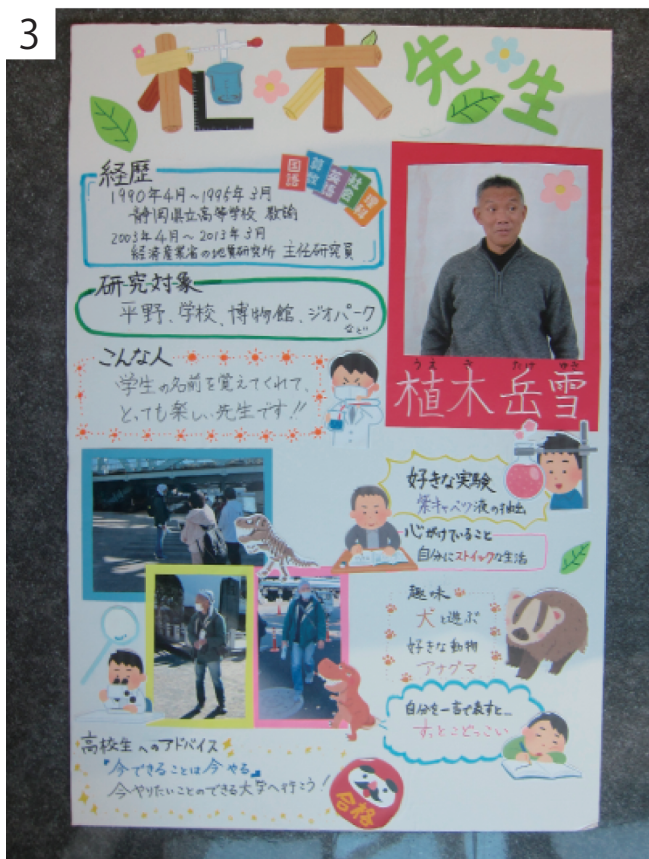 3
植木先生
経歴
国語
算数
英語
社会
理科
1990年4月～1995年3月
静岡県立高等学校 教諭
2003年4月～2013年3月
経済産業省の地質研究所 主任研究員
研究対象
平野、学校、博物館、ジオパーク
など
こんな人
学生の名前を覚えてくれて、
とっても楽しい先生です!!
うえき たけゆき
植木岳雪
好きな実験
紫キャベツ液の抽出
心がけていること
自分にストイックな生活
趣味
犬と遊ぶ
好きな動物
アナグマ
自分を一言で表すと…
すっとこどっこい
高校生へのアドバイス
『今できることは今やる』
今やりたいことのできる大学へ行こう!
合格